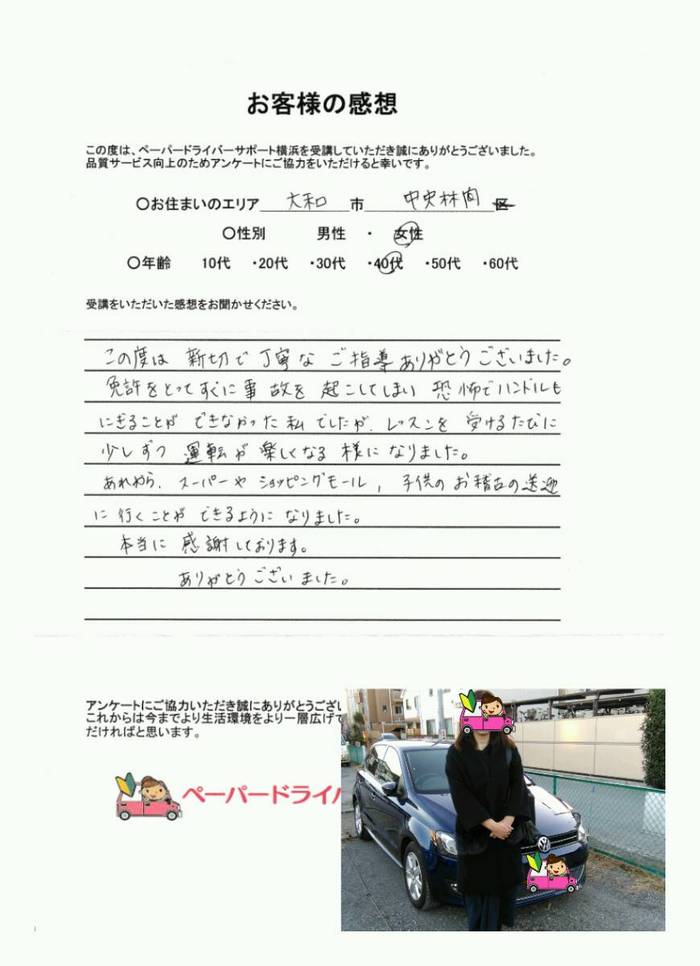 お客様の感想
この度は、ペーパードライバーサポート横浜を受講していただき誠にありがとうございました。
品質サービス向上のためアンケートにご協力をいただけると幸いです。
〇お住まいのエリア 大和 市 中央林間 区
〇性別 男性 ・ 女性
〇年齢 10代 ・20代 ・30代 ・40代 ・50代 ・60代
受講をいただいた感想をお聞かせください。
この度は 親切で 丁寧な ご指導 ありがとうございました。
免許をとってすぐに事故を 起こしてしまい 恐怖でハンドルも
にぎることが できなかった私でしたが、レッスンを 受けるたびに
少しずつ 運転が 楽しくなる 様に なりました。
あれから、スーパーや ショッピングモール、子供のお稽古の送迎
に 行くことが できるように なりました。
本当に 感謝しております。
ありがとうございました。
アンケートにご協力いただき誠にありがとうござい
これからは今までより生活環境をより一層広げて
だければと思います。
ペーパードライバ